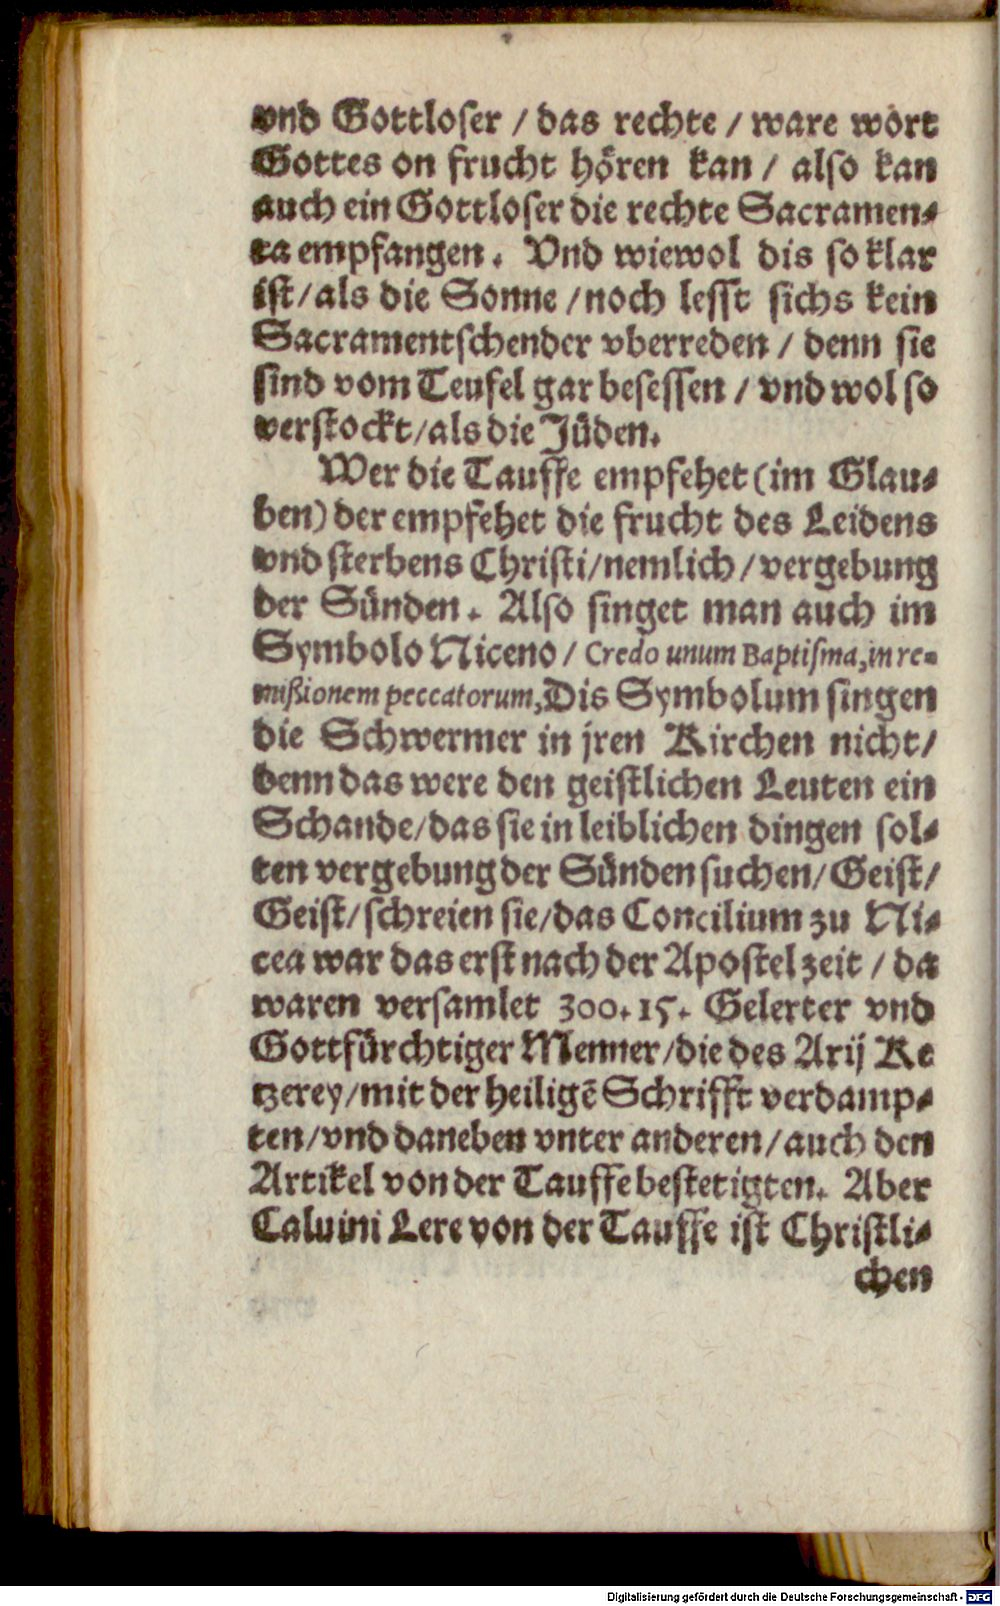 vnd Gottloser / das rechte / ware wort
Gottes on frucht hören kan / also kan
auch ein Gottloser die rechte Sacramen⸗
ta empfangen. Vnd wiewol dis so klar
ist / als die Sonne / noch lesst sichs kein
Sacramentschender vberreden / denn sie
sind vom Teufel gar besessen / vnd wol so
verstockt / als die Jüden.
Wer die Tauffe empfehet (im Glau⸗
ben) der empfehet die frucht des Leidens
vnd sterbens Christi / nemlich / vergebung
der Sünden. Also singet man auch im
Symbolo Niceno / Credo unum Baptisma, in re⸗
mißionem peccatorum, Dis Symbolum singen
die Schwermer in jren Kirchen nicht /
denn das were den geistlichen Leuten ein
Schande / das sie in leiblichen dingen sol⸗
ten vergebung der Sünden suchen / Geist /
Geist / schreien sie / das Concilium zu Ni⸗
cea war das erst nach der Apostel zeit / da
waren versamlet 300. 15. Gelerter vnd
Gottfürchtiger Menner / die des Arij Ke
tzerey / mit der heiligē Schrifft verdamp⸗
ten / vnd daneben vnter anderen / auch den
Artikel von der Tauffe bestetigten. Aber
Caluini Lere von der Tauffe ist Christli⸗
chen
Digitalisierung gefördert durch die Deutsche Forschungsgemeinschaft - DFG